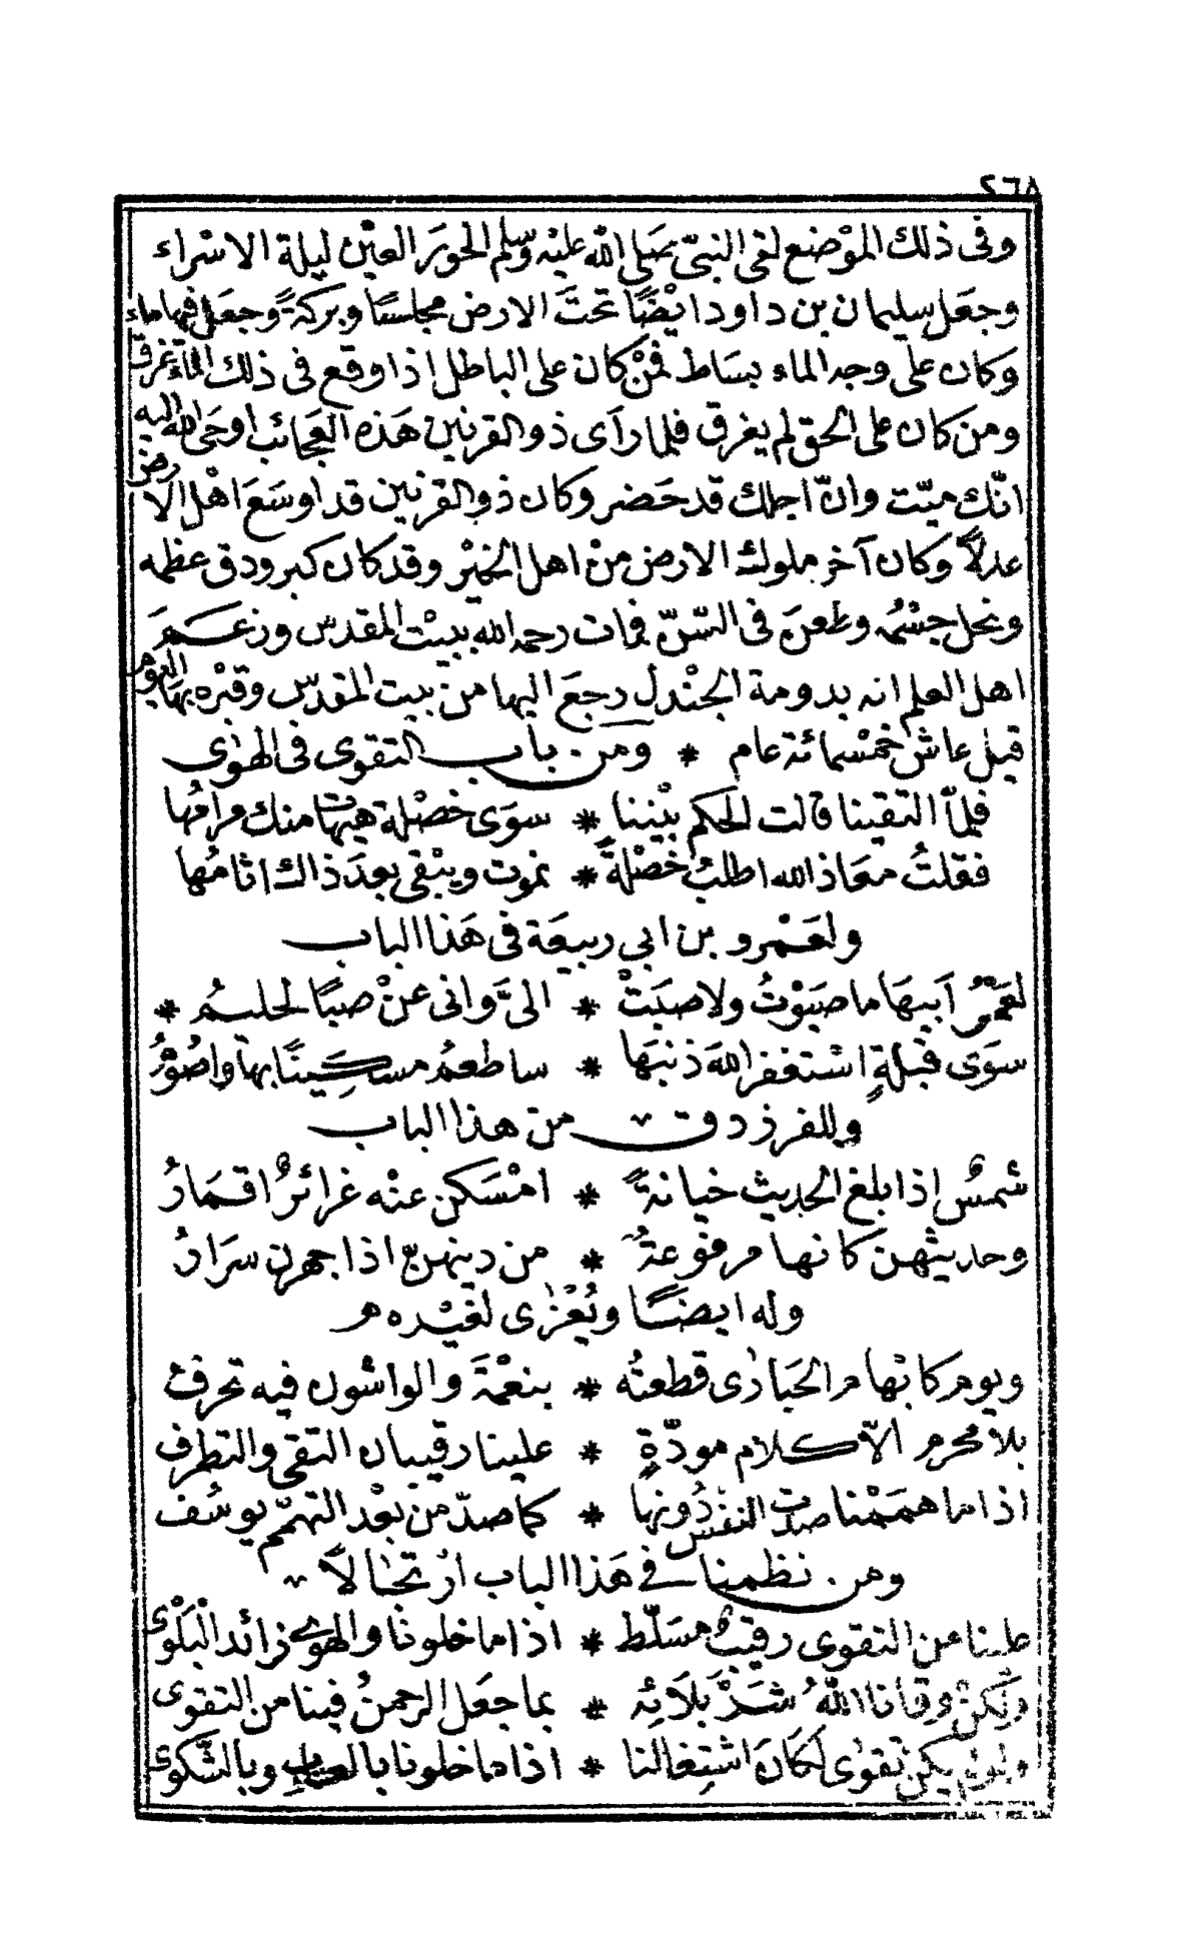 ٢٦٨
وفى ذلك الموْضع لقى النبىّ صَلى اللّٰه عليْه وسلم الحورَ العيْن ليلة الاسْراء
وجعَل سليمان بن داود ايْضًا تحتَ الارض مجلسًا وبركةً وجعَل فيها ماء
وكان على وجه الماء بسَاط فمنْ كان على الباطل اذا وقع فى ذلك الماء غرق
ومن كان على الحق لم يغرق فلما رآى ذو القرنين هَذه العجَائب اوحَى الله اليه
انّك ميّت وانّ اجلك قد حَضر وكان ذو القرنين قد اوسَعَ اهْل الارض
عدلاً وكان آخر ملوك الارض منْ اهل الخيْر وقد كان كبر ودق عظمه
ونحل جسْمُه وطعنَ فى السّنّ فمات رحمه الله ببيْت المقدس وزعَمَ
اهل العلم انه بدومة الجنْدل رجعَ اليها من بيت المقدّس وقبْره بهَا اليوم
قيل عاش خمسْمائة عام * ومن باب التقوى فى الهوٰى
فلمّا التقينا قالت الحكم بيْننا * سوَى خصْلة هيهَات منك مرامُها
فقلتُ معَاذ الله اطلبُ خصْلةً * نموت ويبْقى بعدَ ذاك اثامُها
ولعَمْرو بن ابي ربيعَة فى هَذا الباب
لعَمْرى اَبيهَا ما صبَوْتُ ولا صبَتْ * الىَّ وانى عنْ صبًا لحليمُ *
سوَى قبْلةٍ اسْتغفر اللهَ ذنبَها * ساطعمُ مسكِينًا بها واصُومُ
وللفرزدق من هذا الباب
شمسٌ اذا بلغ الحديث خيانةً * امْسَكن عنْه غرائرٌ اقمَارُ
وحديثهن كانها مرفوعةٌ * من دينهنّ اذا جهرن سرَارُ
وله ايضًا ويُعْزٰى لغيْره
ويوم كابْهام الحبَارٰى قطعتُه * بنعْمَةَ والواشون فيه تحرفُ
بلا محرم الاّ كلام مودّةٍ * علينا رقيبان التقى والتطرف
اذا ما هممْنا صدت النفس دُونها * كما صدّ من بعْد التهمّم يوسُف
ومن نظمنا فى هَذا الباب ارْتجَالاً
علينا من التقوى رقيبٌ مسَلّط * اذا ما خلونا والهوٰى زائد البَلْوٰى
ولكنْ وقانا اللهُ شدّ بَلَائِه * بما جعَل الرحمنُ فينا من التقوى
ولو لم يكن تقوٰى لكَانَ اشتِغالنا * اذا ما خلونا بالعتاب وبالشّكوٰى